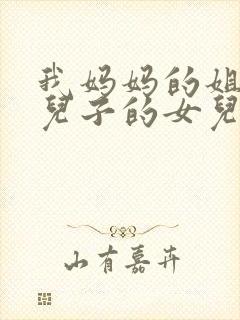 我妈妈的姐
兒子的女兒
山有嘉卉